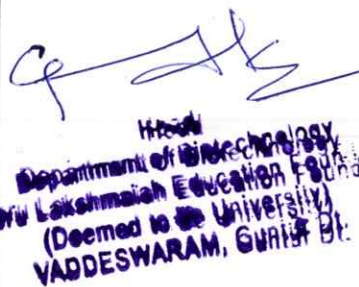 Head
Department of Biotechnology
Lakshmaiah Education
(Deemed to be University)
VADDESWARAM, Guntur Dt.